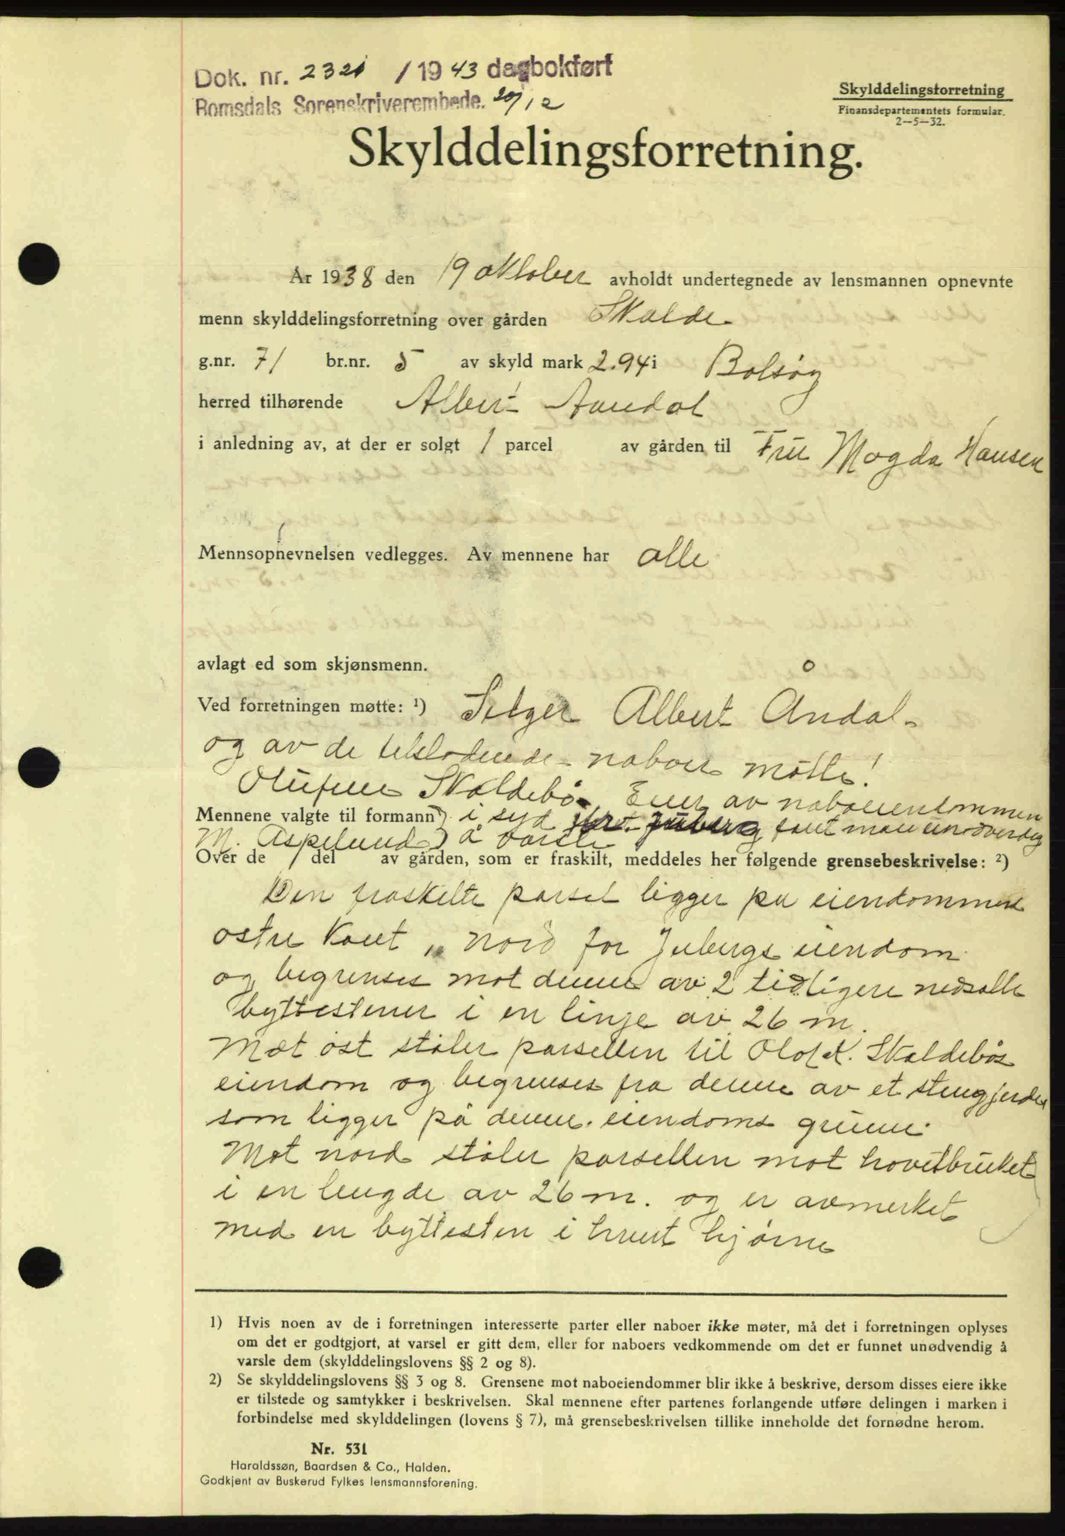 Dok. nr. 2321 / 1943 dagbokført
Romsdals Sorenskriverembede. 20/12
Skylddelingsforretning
Finansdepartementets formular.
2—5—32.
Skylddelingsforretning.
År 1938 den 19 oktober avholdt undertegnede av lensmannen opnevnte
menn skylddelingsforretning over gården Skalde
g.nr. 71 br.nr. 5 av skyld mark 2.94 i Bolsøy
herred tilhørende Albert Aandal
i anledning av, at der er solgt 1 parcel av gården til Fru Magda Hansen
Mennsopnevnelsen vedlegges. Av mennene har alle
avlagt ed som skjønsmenn.
Ved forretningen møtte: ¹) Selger Albert Åndal
og av de tilstødende naboer møtte!
Olufine Skaldebø. Eier av naboeiendommen
Mennene valgte til formann i syd hr. Juberg fant man unødvendig
M. Aspelund å varsle
Over de 1 del av gården, som er fraskilt, meddeles her følgende grensebeskrivelse: ²)
Den fraskilte parsel ligger på eiendommens
østre kant, nord for Jubergs eiendom
og begrenses mot denne av 2 tidligere nedsatte
byttestener i en linje av 26 m.
Mot øst støter parsellen til Olof K. Skaldebøs
eiendom og begrenses fra denne av et stengjerde
som ligger på denne eiendoms grunn.
Mot nord støter parsellen mot hovedbruket
i en lengde av 26 m. og er avmerket
med en byttesten i hvert hjørne
1) Hvis noen av de i forretningen interesserte parter eller naboer ikke møter, må det i forretningen oplyses
om det er godtgjort, at varsel er gitt dem, eller for naboers vedkommende om det er funnet unødvendig å
varsle dem (skylddelingslovens §§ 2 og 8).
2) Se skylddelingslovens §§ 3 og 8. Grensene mot naboeiendommer blir ikke å beskrive, dersom disses eiere ikke
er tilstede og samtykker i beskrivelsen. Skal mennene efter partenes forlangende utføre delingen i marken i
forbindelse med skylddelingen (lovens § 7), må grensebeskrivelsen tillike inneholde det fornødne herom.
Nr. 531
Haraldssøn, Baardsen & Co., Halden.
Godkjent av Buskerud Fylkes lensmannsforening.